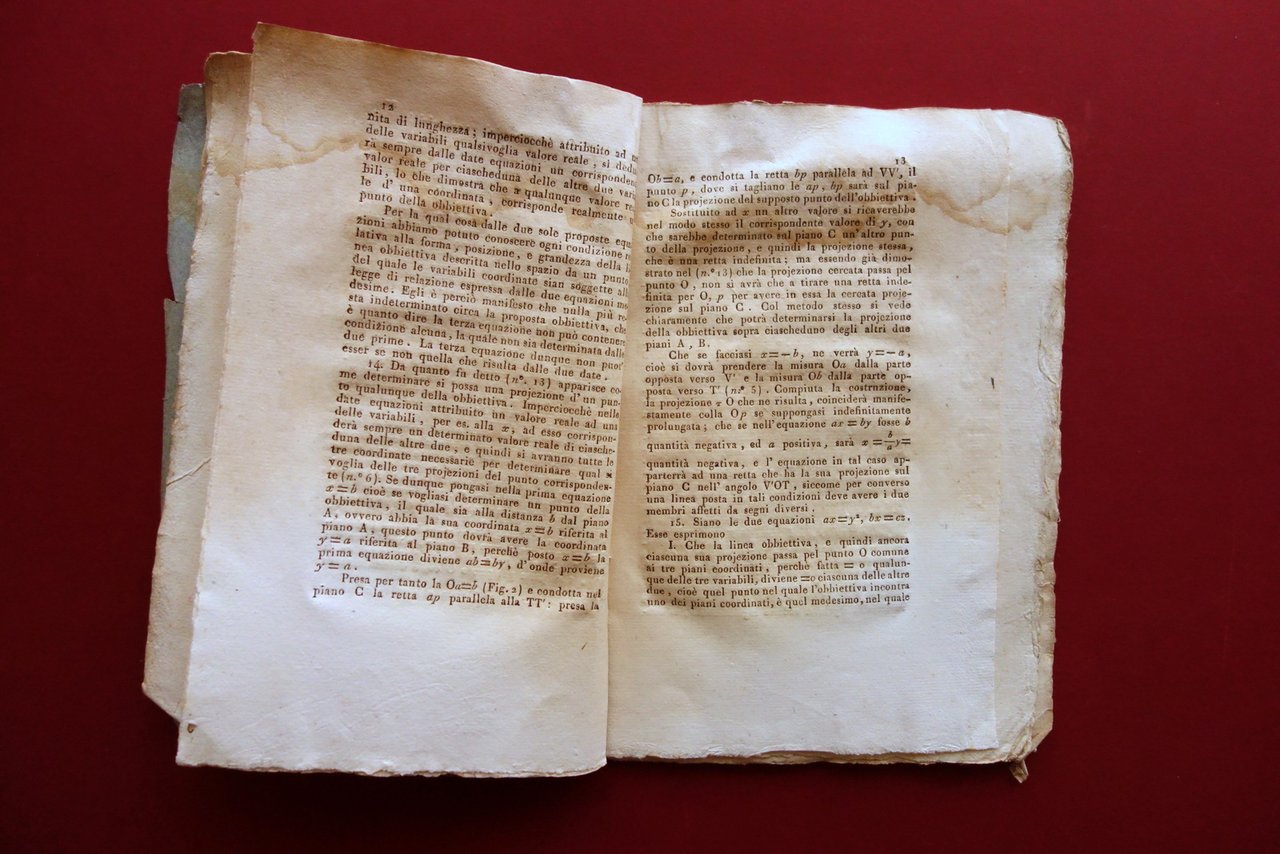 12
nita di lunghezza; imperciocchè attribuito ad
delle variabili qualsivoglia valore reale, si
rà sempre dalle date equazioni un
valor reale per ciascheduna delle altre due
bili, lo che dimostra che x qualunque valore
le d'una coordinata, corrisponde realmente
punto della obbiettiva.
Per la qual cosa dalle due sole proposte
zioni abbiamo potuto conoscere ogni condizione
lativa alla forma, posizione, e grandezza della
nea obbiettiva descritta nello spazio da un punto
del quale le variabili coordinate sian soggette
legge di relazione espressa dalle due equazioni
desime. Egli è perciò manifesto che nulla più
sta indeterminato circa la proposta obbiettiva, che
è quanto dire la terza equazione non può contenere
condizione alcuna, la quale non sia determinata dalle
due prime. La terza equazione dunque non puot'
esser se non quella che risulta dalle due date.
14. Da quanto fu detto (n.º 13) apparisce co-
me determinare si possa una projezione d'un pun-
to qualunque della obbiettiva. Imperciocchè nelle
date equazioni attribuito un valore reale ad una
delle variabili, per es. alla x, ad esso corrispon-
derà sempre un determinato valore reale di ciasche-
duna delle altre due, e quindi si avranno tutte le
tre coordinate necessarie per determinare qual si
voglia delle tre projezioni del punto corrisponden-
te (n.º 6). Se dunque pongasi nella prima equazione
x=b cioè se vogliasi determinare un punto della
obbiettiva, il quale sia alla distanza b dal piano
A, ovvero abbia la sua coordinata x=b riferita al
piano A, questo punto dovrà avere la coordinata
y=a riferita al piano B, perchè posto x=b la
prima equazione diviene ab=by, d'onde proviene
y=a.
Presa per tanto la Oa=b (Fig. 2) e condotta nel
piano C la retta ap parallela alla TT': presa la
13
Ob=a, e condotta la retta bp parallela ad VV', il
punto p, dove si tagliano le ap, bp sarà sul pia-
no C la projezione del supposto punto dell'obbiettiva.
Sostituito ad x un altro valore si ricaverebbe
nel modo stesso il corrispondente valore di y, con
che sarebbe determinato sul piano C un'altro pun-
to della projezione, e quindi la projezione stessa,
che è una retta indefinita; ma essendo già dimo-
strato nel (n.º 13) che la projezione cercata passa pel
punto O, non si avrà che a tirare una retta inde-
finita per O, p per avere in essa la cercata proje-
zione sul piano C. Col metodo stesso si vede
chiaramente che potrà determinarsi la projezione
della obbiettiva sopra ciascheduno degli altri due
piani A, B.
Che se facciasi x=-b, ne verrà y=-a,
cioè si dovrà prendere la misura Oa dalla parte
opposta verso V' e la misura Ob dalla parte op-
posta verso T' (n.º 5). Compiuta la costruzione,
la projezione O che ne risulta, coinciderà manife-
stamente colla Op se suppongasi indefinitamente
prolungata; che se nell'equazione ax=by fosse b
quantità negativa, ed a positiva, sarà x=b/a y=
quantità negativa, e l'equazione in tal caso ap-
parterrà ad una retta che ha la sua projezione sul
piano C nell'angolo V'OT, siccome per converso
una linea posta in tali condizioni deve avere i due
membri affetti da segni diversi.
15. Siano le due equazioni ax=y², bx=cz.
Esse esprimono
I. Che la linea obbiettiva, e quindi ancora
ciascuna sua projezione passa pel punto O comune
ai tre piani coordinati, perchè fatta =o qualun-
que delle tre variabili, diviene =o ciascuna delle altre
due, cioè quel punto nel quale l'obbiettiva incontra
uno dei piani coordinati, è quel medesimo, nel quale